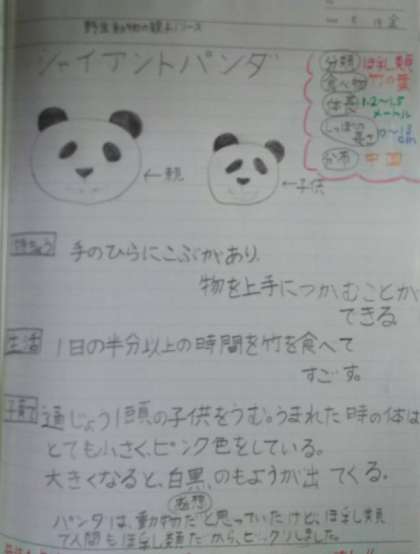 野生動物の親子シリーズ
ジャイアントパンダ
分類 ほ乳類
食べ物 竹の葉
体長 1.2〜1.5メートル
しっぽの長さ 10〜13cm
分布 中国
←親
←子供
特ちょう 手のひらにこぶがあり、
物を上手につかむことが
できる
生活 1日の半分以上の時間を竹を食べて
すごす。
子育て 通じょう1頭の子供をうむ。うまれた時の体は
とても小さく、ピンク色をしている。
大きくなると、白黒、のもようが出てくる。
感想
パンダは、動物だと思っていたけど、ほ乳類
で人間もほ乳類だから、ビックリしました。